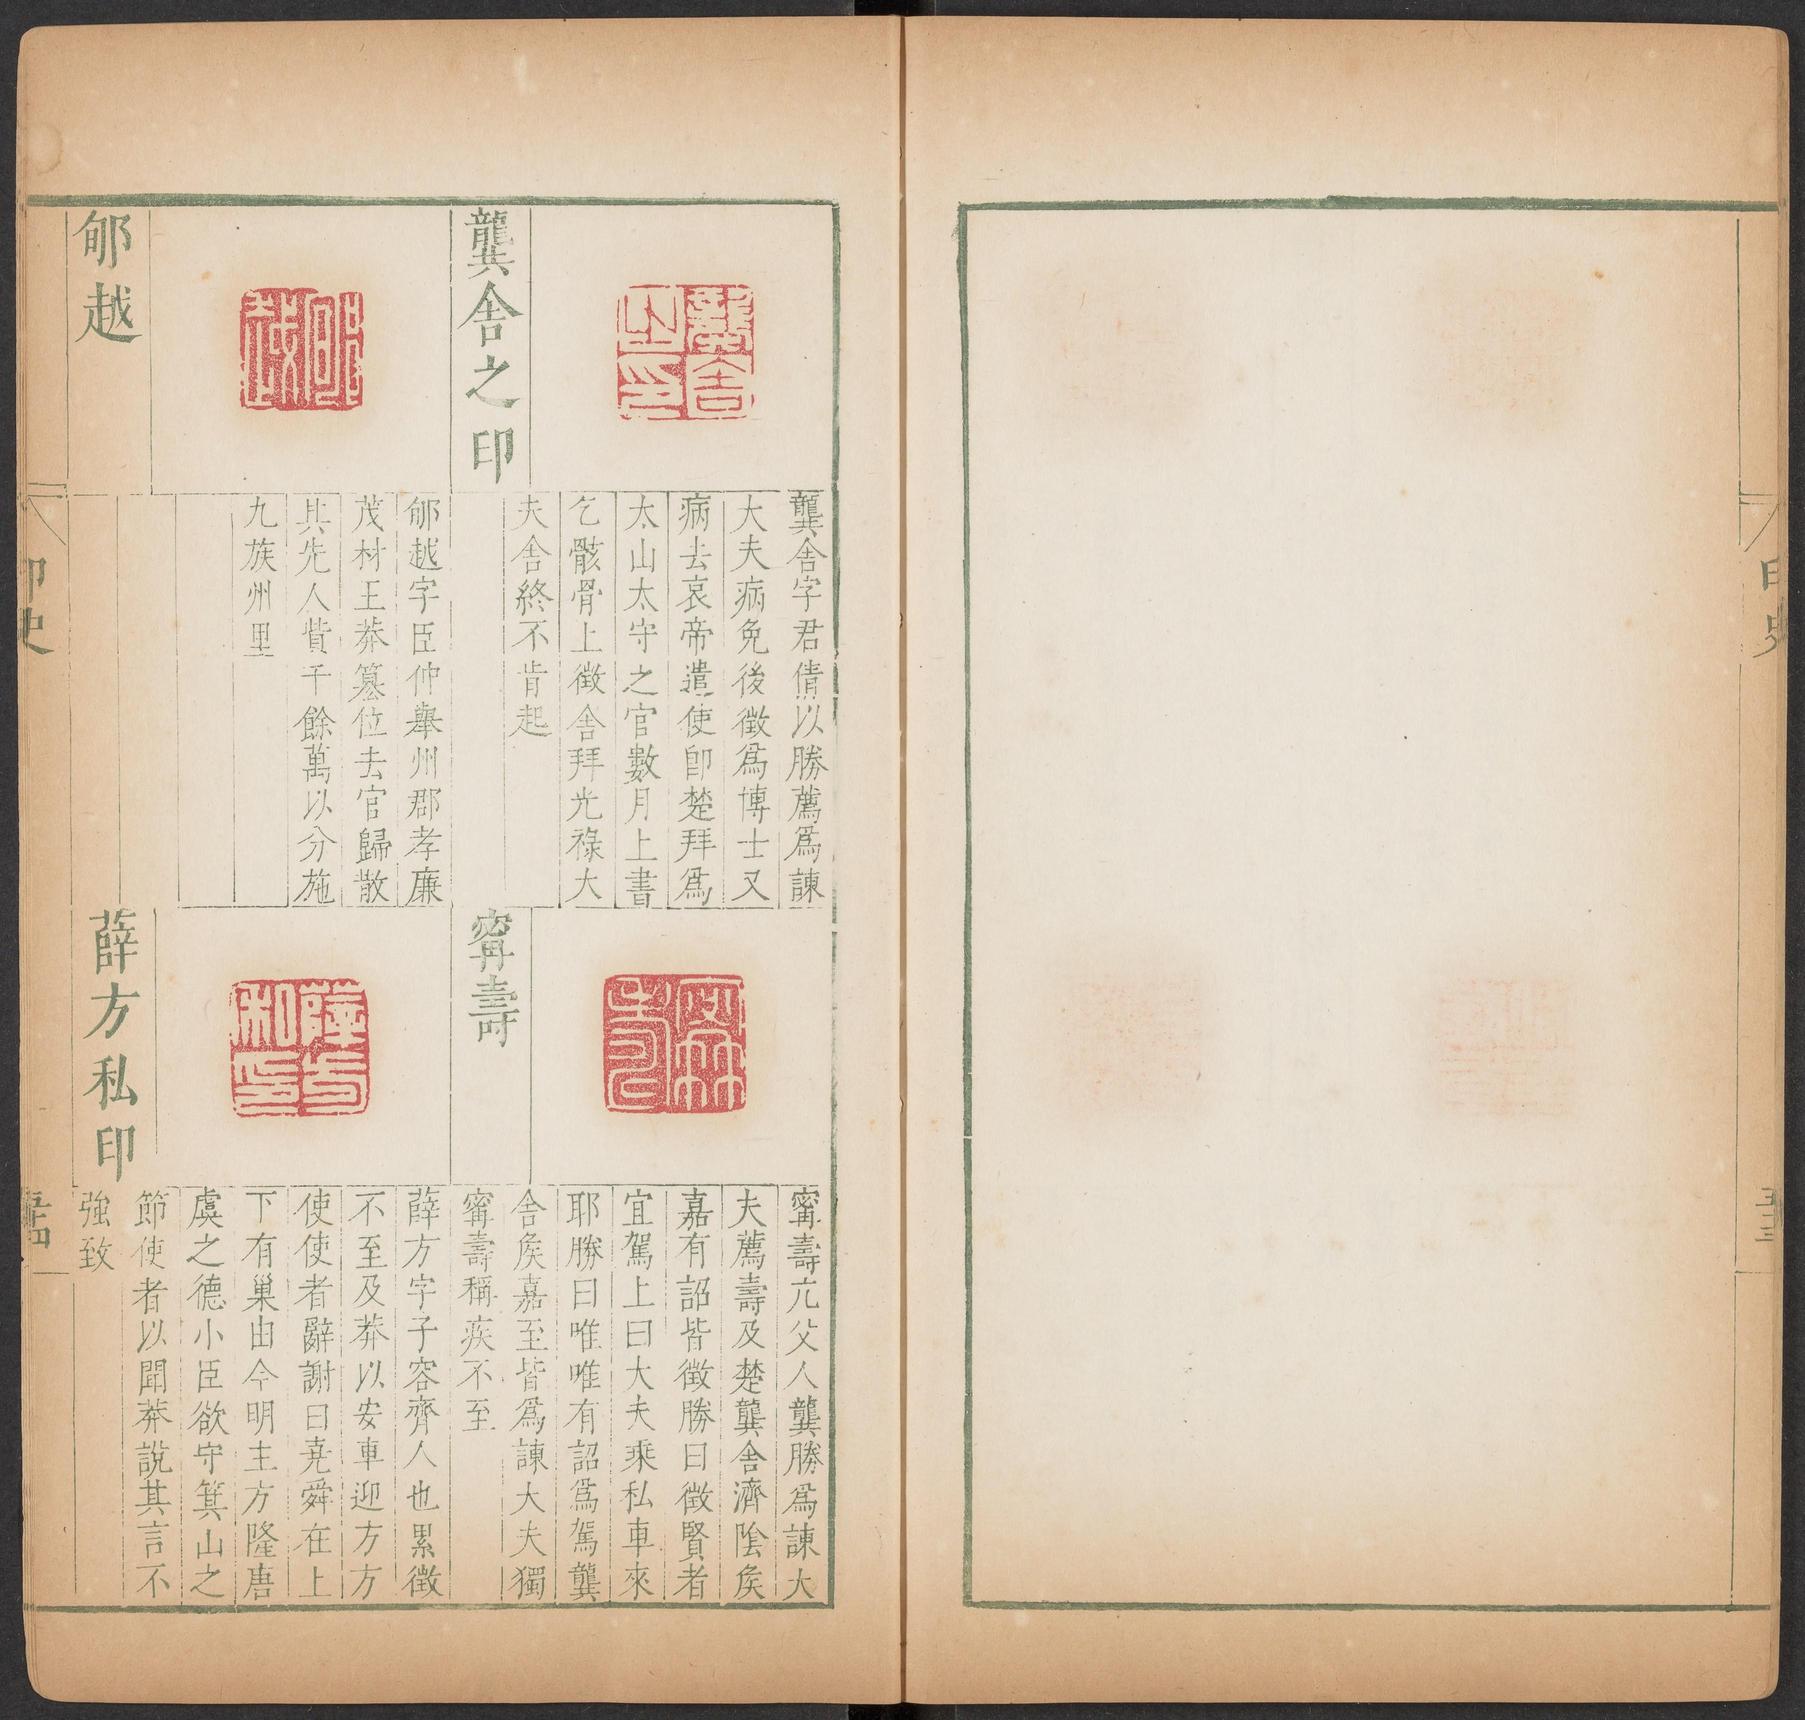 印史
五十三
龔舍之印
龔舍之印
龔舍字君倩以勝薦爲諫
大夫病免後徵爲博士又
病去哀帝遣使卽楚拜爲
太山太守之官數月上書
乞骸骨上徵舍拜光祿大
夫舍終不肯起
郇越
郇越
郇越字臣仲舉州郡孝廉
茂材王莽篡位去官歸散
其先人貲千餘萬以分施
九族州里
甯壽
甯壽
甯壽亢父人龔勝爲諫大
夫薦壽及楚龔舍濟陰侯
嘉有詔皆徵勝曰徵賢者
宜駕上曰大夫乘私車來
耶勝曰唯唯有詔爲駕龔
舍侯嘉至皆爲諫大夫獨
甯壽稱疾不至
薛方私印
薛方私印
薛方字子容齊人也累徵
不至及莽以安車迎方方
使使者辭謝曰堯舜在上
下有巢由今明主方隆唐
虞之德小臣欲守箕山之
節使者以聞莽說其言不
強致
印史
五十四